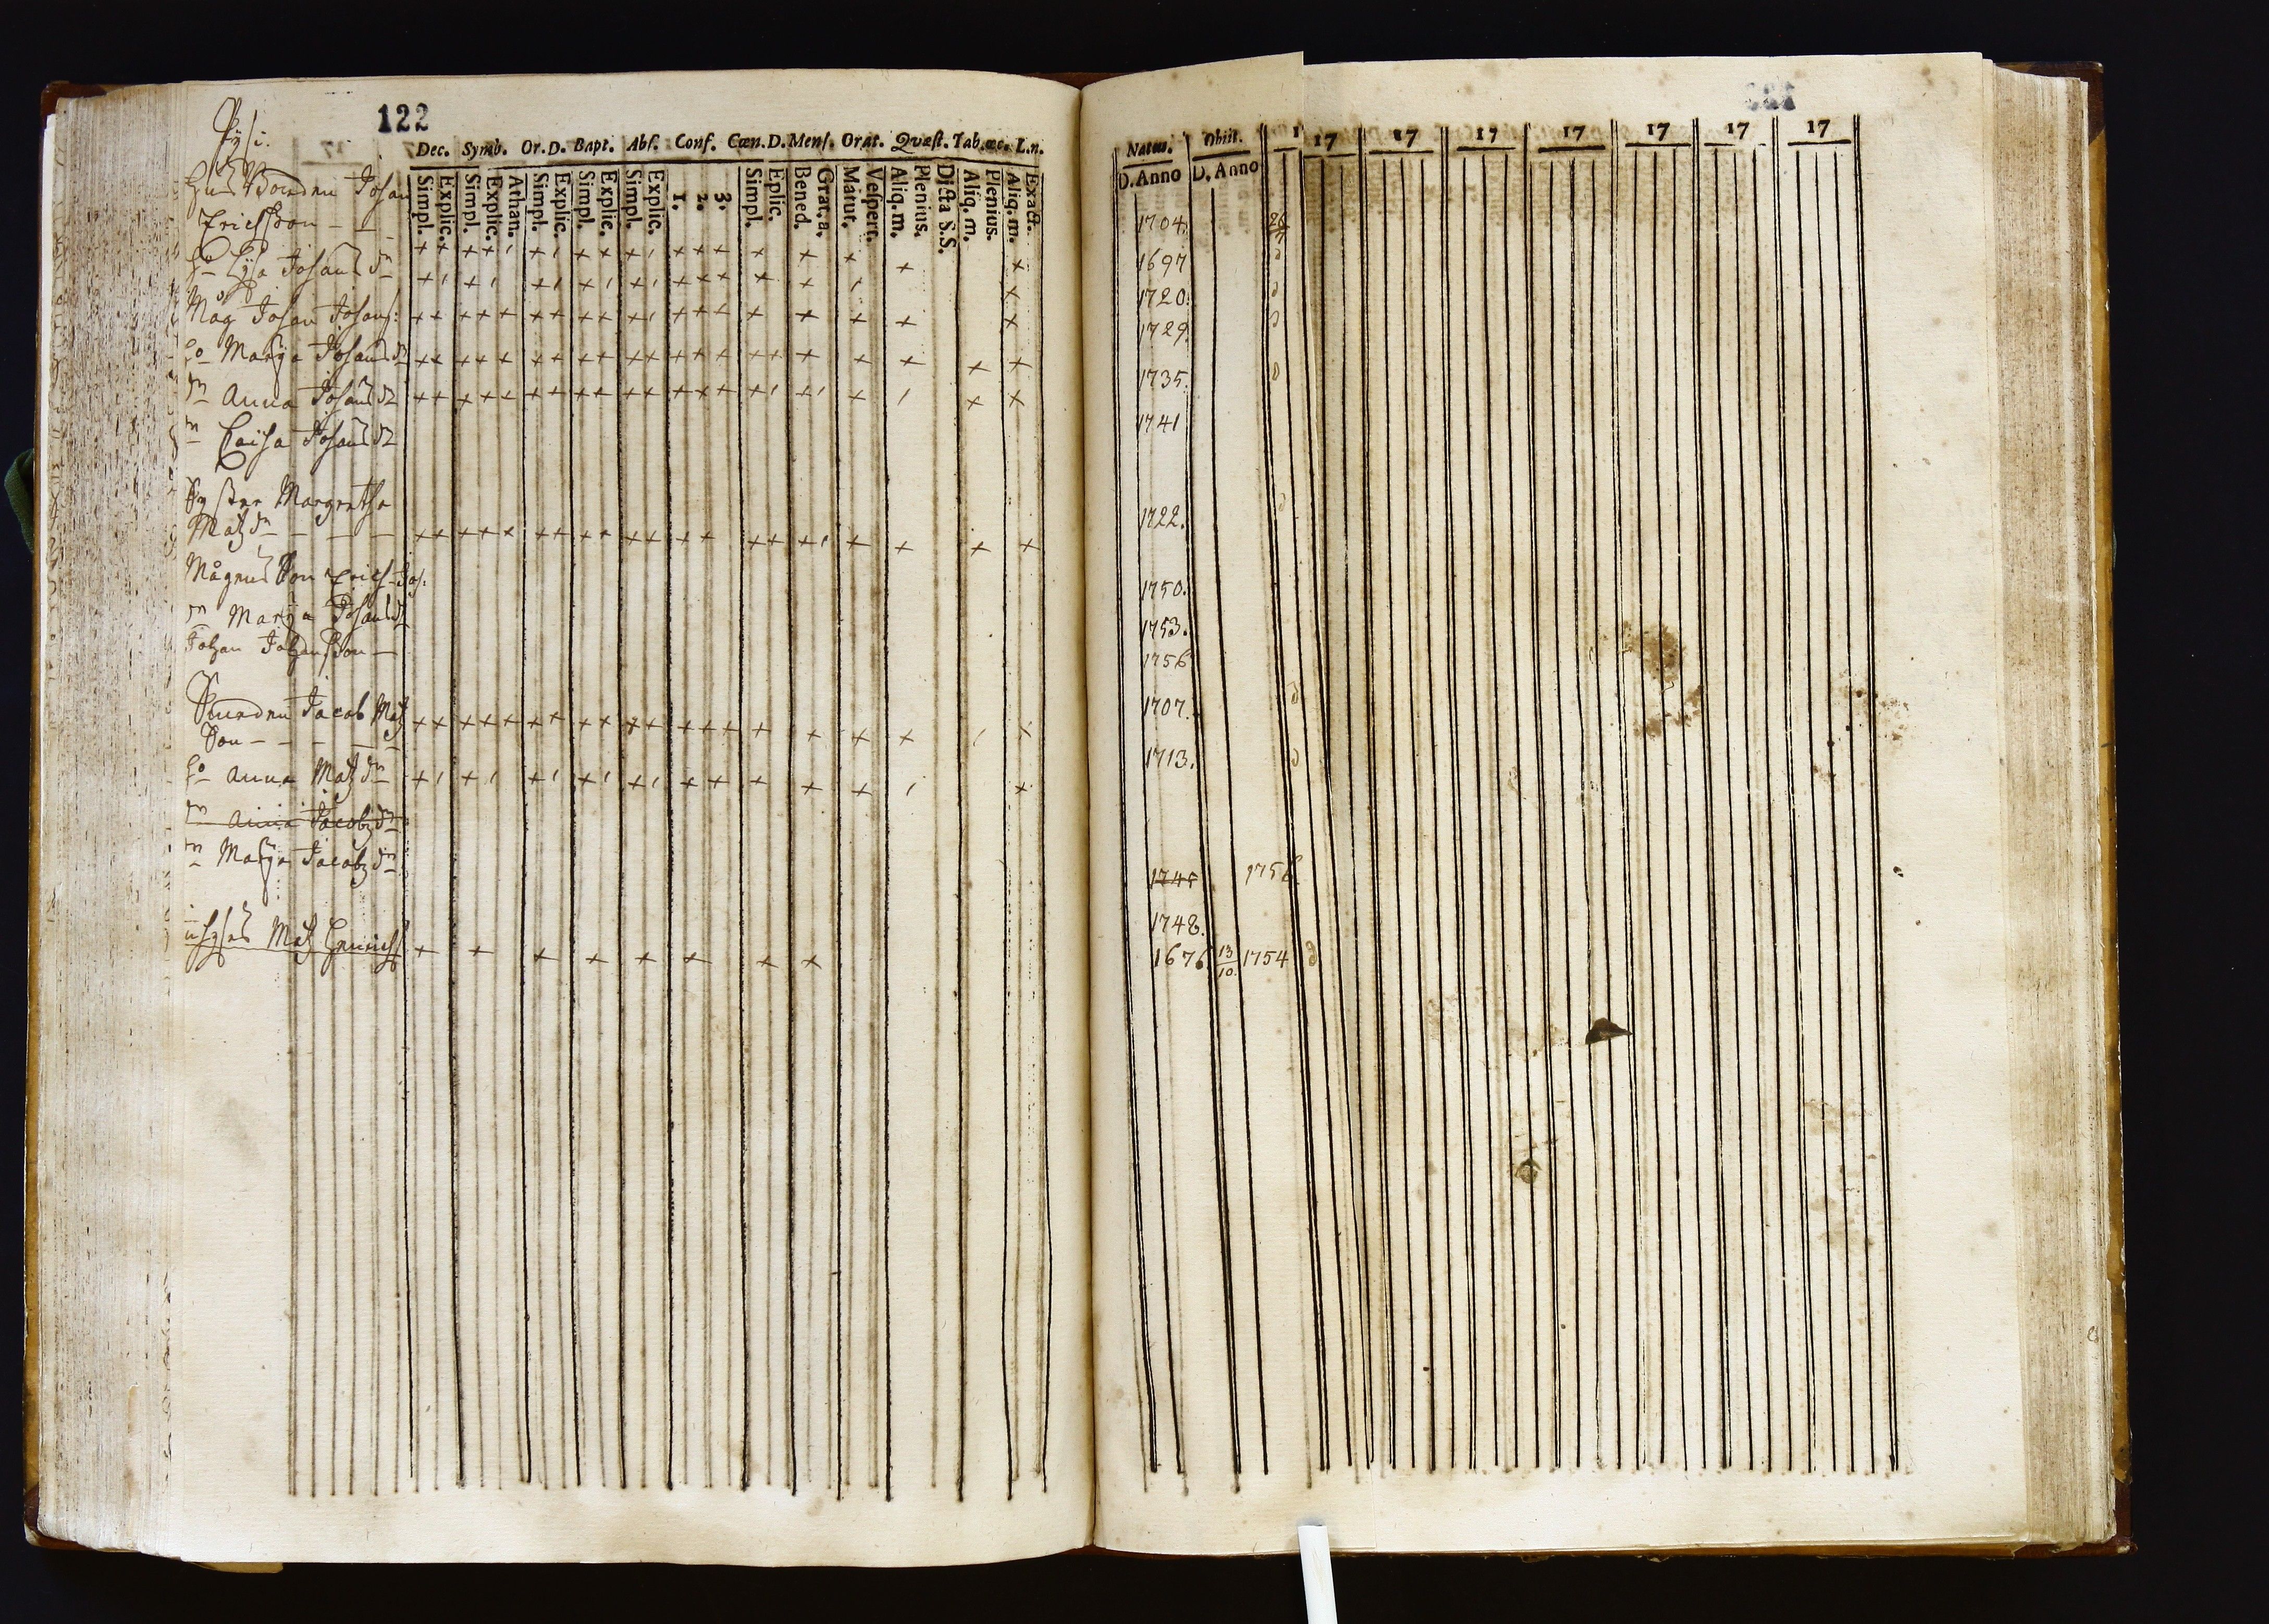 122
Dec. Symb. Or.D. Bapt. Abſ. Conf. Cœn.D. Menſ. Orat. Qvæſt. Tab.œc. L.n.
Simpl. Explic. Simpl. Explic. Athan. Simpl. Explic. Simpl. Explic. Simpl. Explic. 1. 2. 3. Simpl. Eplic. Bened. Grat. a. Matut. Veſpert. Aliq. m. Plenius. Dicta S.S. Aliq. m. Plenius. Aliq. m. Exact.
Bonden Johan
Ericsson
Lisa Johans dr
Måg Johan Johans:
Maria Johans dr
dr Anna Johans dr
dr Caisa Johans dr
Syster Margretha
Matz dr
Mågens Son Erich Joh:
dr Maria Johans dr
Johan Johansson
Bonden Jacob Matz
Son
Anna Matz dr
dr Anna Jacobs dr
dr Maria Jacobs dr
Matz
Natus. Obiit. 1 17 17 17 17 17 17 17
D. Anno D. Anno
1704.
1697
1720.
1729.
1735.
1741
1722.
1750.
1753.
1756
1707.
1713.
1745 1756.
1748.
1676 13/10. 1754